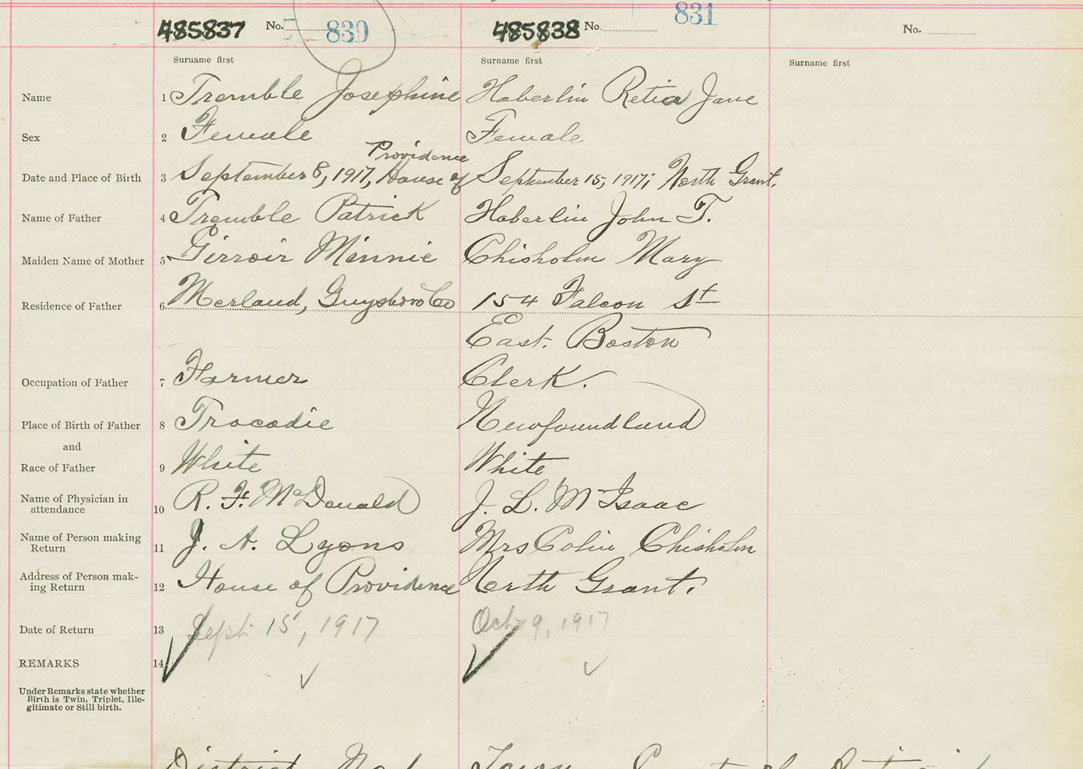 485837 No. 830 485838 No. 831 No.
Surname first Surname first Surname first
Name 1 Tremble Josephine Haberlin Retia Jane
Sex 2 Female Female.
Providence
Date and Place of Birth 3 September 8, 1917, House of September 15, 1917; North Grant.
Name of Father 4 Tremble Patrick Haberlin John T.
Maiden Name of Mother 5 Girroir Minnie Chisholm Mary
Residence of Father 6 Merland, Guysboro Co 154 Falcon St
East. Boston
Occupation of Father 7 Farmer Clerk.
Place of Birth of Father 8 Tracadie Newfoundland
and
Race of Father 9 White White
Name of Physician in
attendance 10 R. F. McDonald J. L. McIsaac
Name of Person making
Return 11 J. A. Lyons Mrs Colin Chisholm
Address of Person mak-
ing Return 12 House of Providence North Grant.
Date of Return 13 Sept. 15, 1917 Oct 9, 1917
REMARKS 14
Under Remarks state whether
Birth is Twin, Triplet, Ille-
gitimate or Still birth.